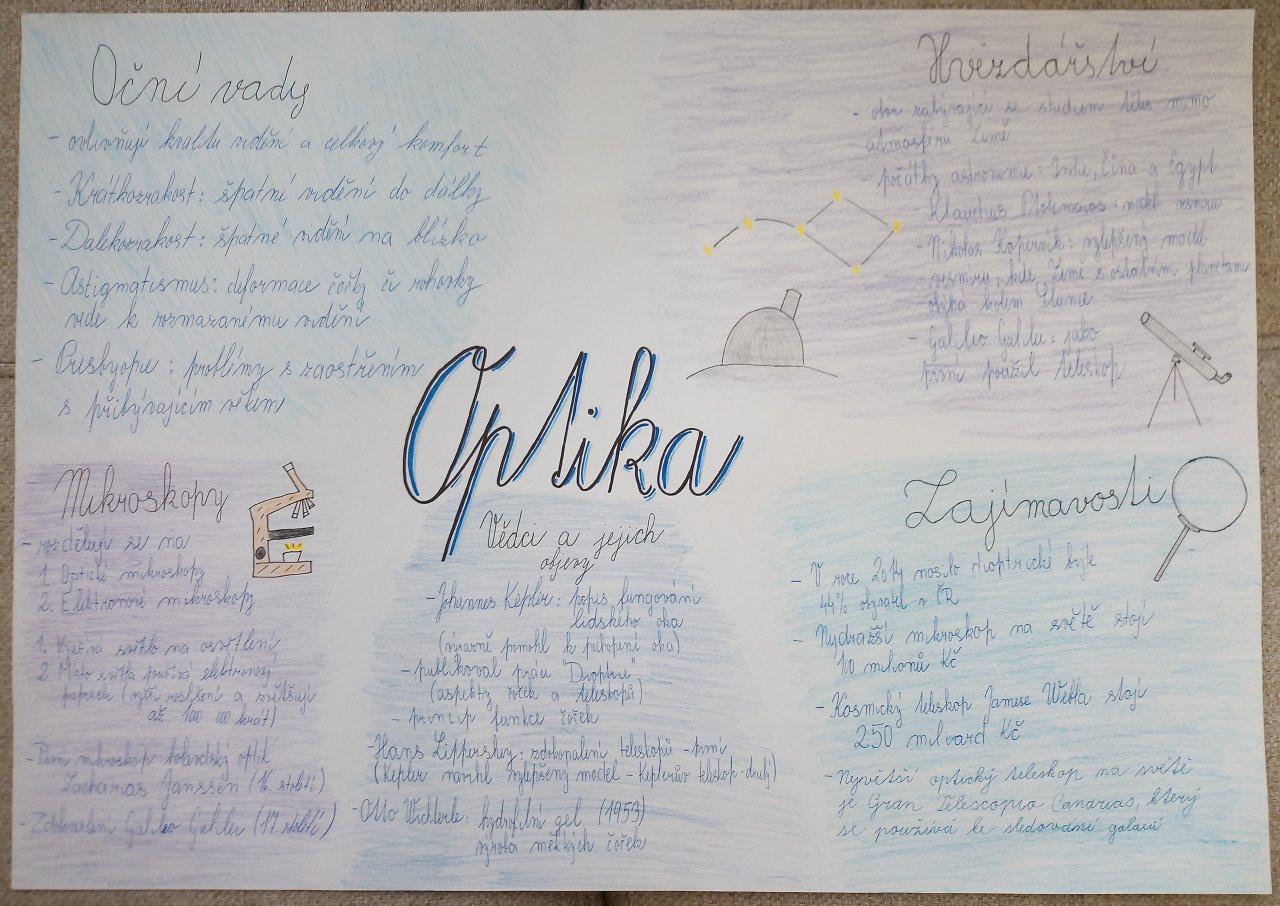 Oční vady
- ovlivňují kvalitu vidění a celkový komfort
- Krátkozrakost: špatné vidění do dálky
- Dalekozrakost: špatné vidění na blízko
- Astigmatismus: deformace čočky či rohovky
vede k rozmazanému vidění
- Presbyopie: problémy s zaostřením
s přibývajícím věkem
Hvězdářství
- obor zabývající se studiem těles mimo
atmosféru Země
- počátky astronomie: Indie, Čína a Egypt
- Klaudius Ptolemaios: model vesmíru
- Nikolas Koperník: vylepšený model
vesmíru, kde Země s ostatním planetam
obíhá kolem Slunce
- Galileo Galilei: jako
první použil teleskop
Optika
Mikroskopy
- rozdělují se na
1. Optické mikroskopy
2. Elektronové mikroskopy
1. Využívá světlo na osvětlení
2. Místo světla používá elektronový
paprsek (vyšší rozlišení a zvětšují
až 1000 000 krát)
- První mikroskop holandský optik
Zacharias Janssen (16. století)
- Zdokonalení Galileo Galilei (17. století)
Vědci a jejich
objevy
- Johannes Kepler: popis fungování
lidského oka
(výrazně pomohl k pochopení oka)
- publikoval práci "Dioptrie"
(aspekty čoček a teleskopů)
- princip funkce čoček
- Hans Lippershey: zdokonalení teleskopů - první
(Kepler navrhl vylepšený model - Keplerův teleskop - druhý)
- Otto Wichterle: hydrofilní gel (1953)
výroba měkkých čoček
Zajímavosti
- V roce 2014 nosilo dioptrické brýle
44% obyvatel v ČR
- Nejdražší mikroskop na světě stojí
10 milionů Kč
- Kosmický teleskop Jamese Webba stojí
250 miliard Kč
- Největší optický teleskop na světě
je Gran Telescopio Canarias, který
se používá ke sledování galaxií